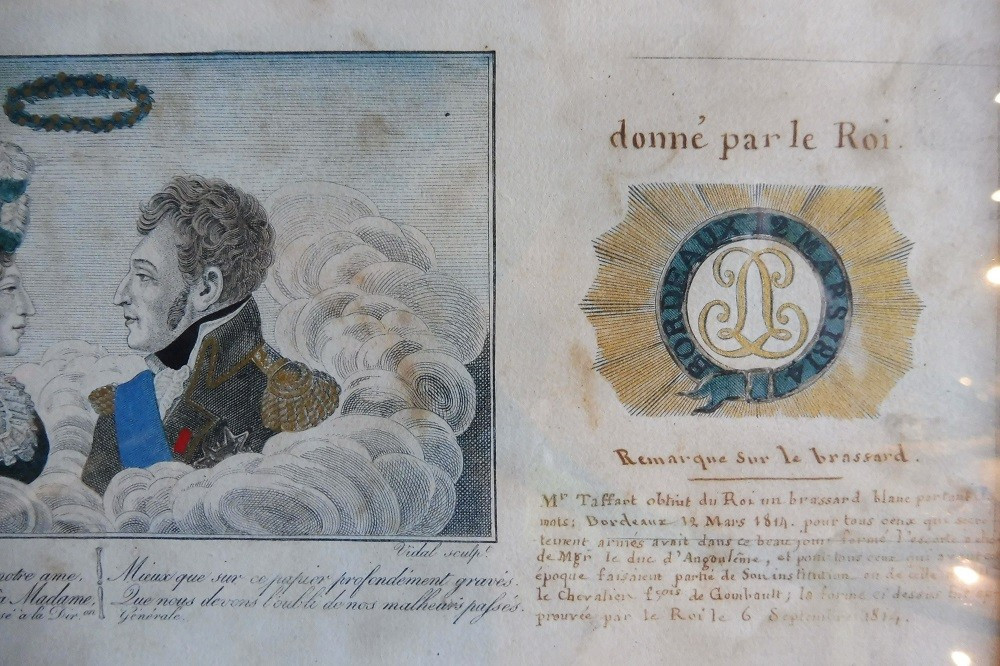 donné par le Roi.
BORDEAUX 12 MARS 1814
Remarque sur le brassard.
Mr Taffart obtint du Roi un brassard blanc portant
mots; Bordeaux 12 Mars 1814. pour tous ceux que
armés avait dans ce beau jour formé l'escorte
de Mgr le duc d'Angoulême, et pour tous ceux qui
époque faisaient partie de Son institution ou de celle
le Chevalier fçois de Gombault; la forme ci dessus
prouvée par le Roi le 6 Septembre 1814.
Vidal sculpt.
notre ame,
Madame,
sé à la Der.on
Mieux que sur ce papier profondément gravés.
Que nous devons l'oubli de nos malheurs passés.
Générale.